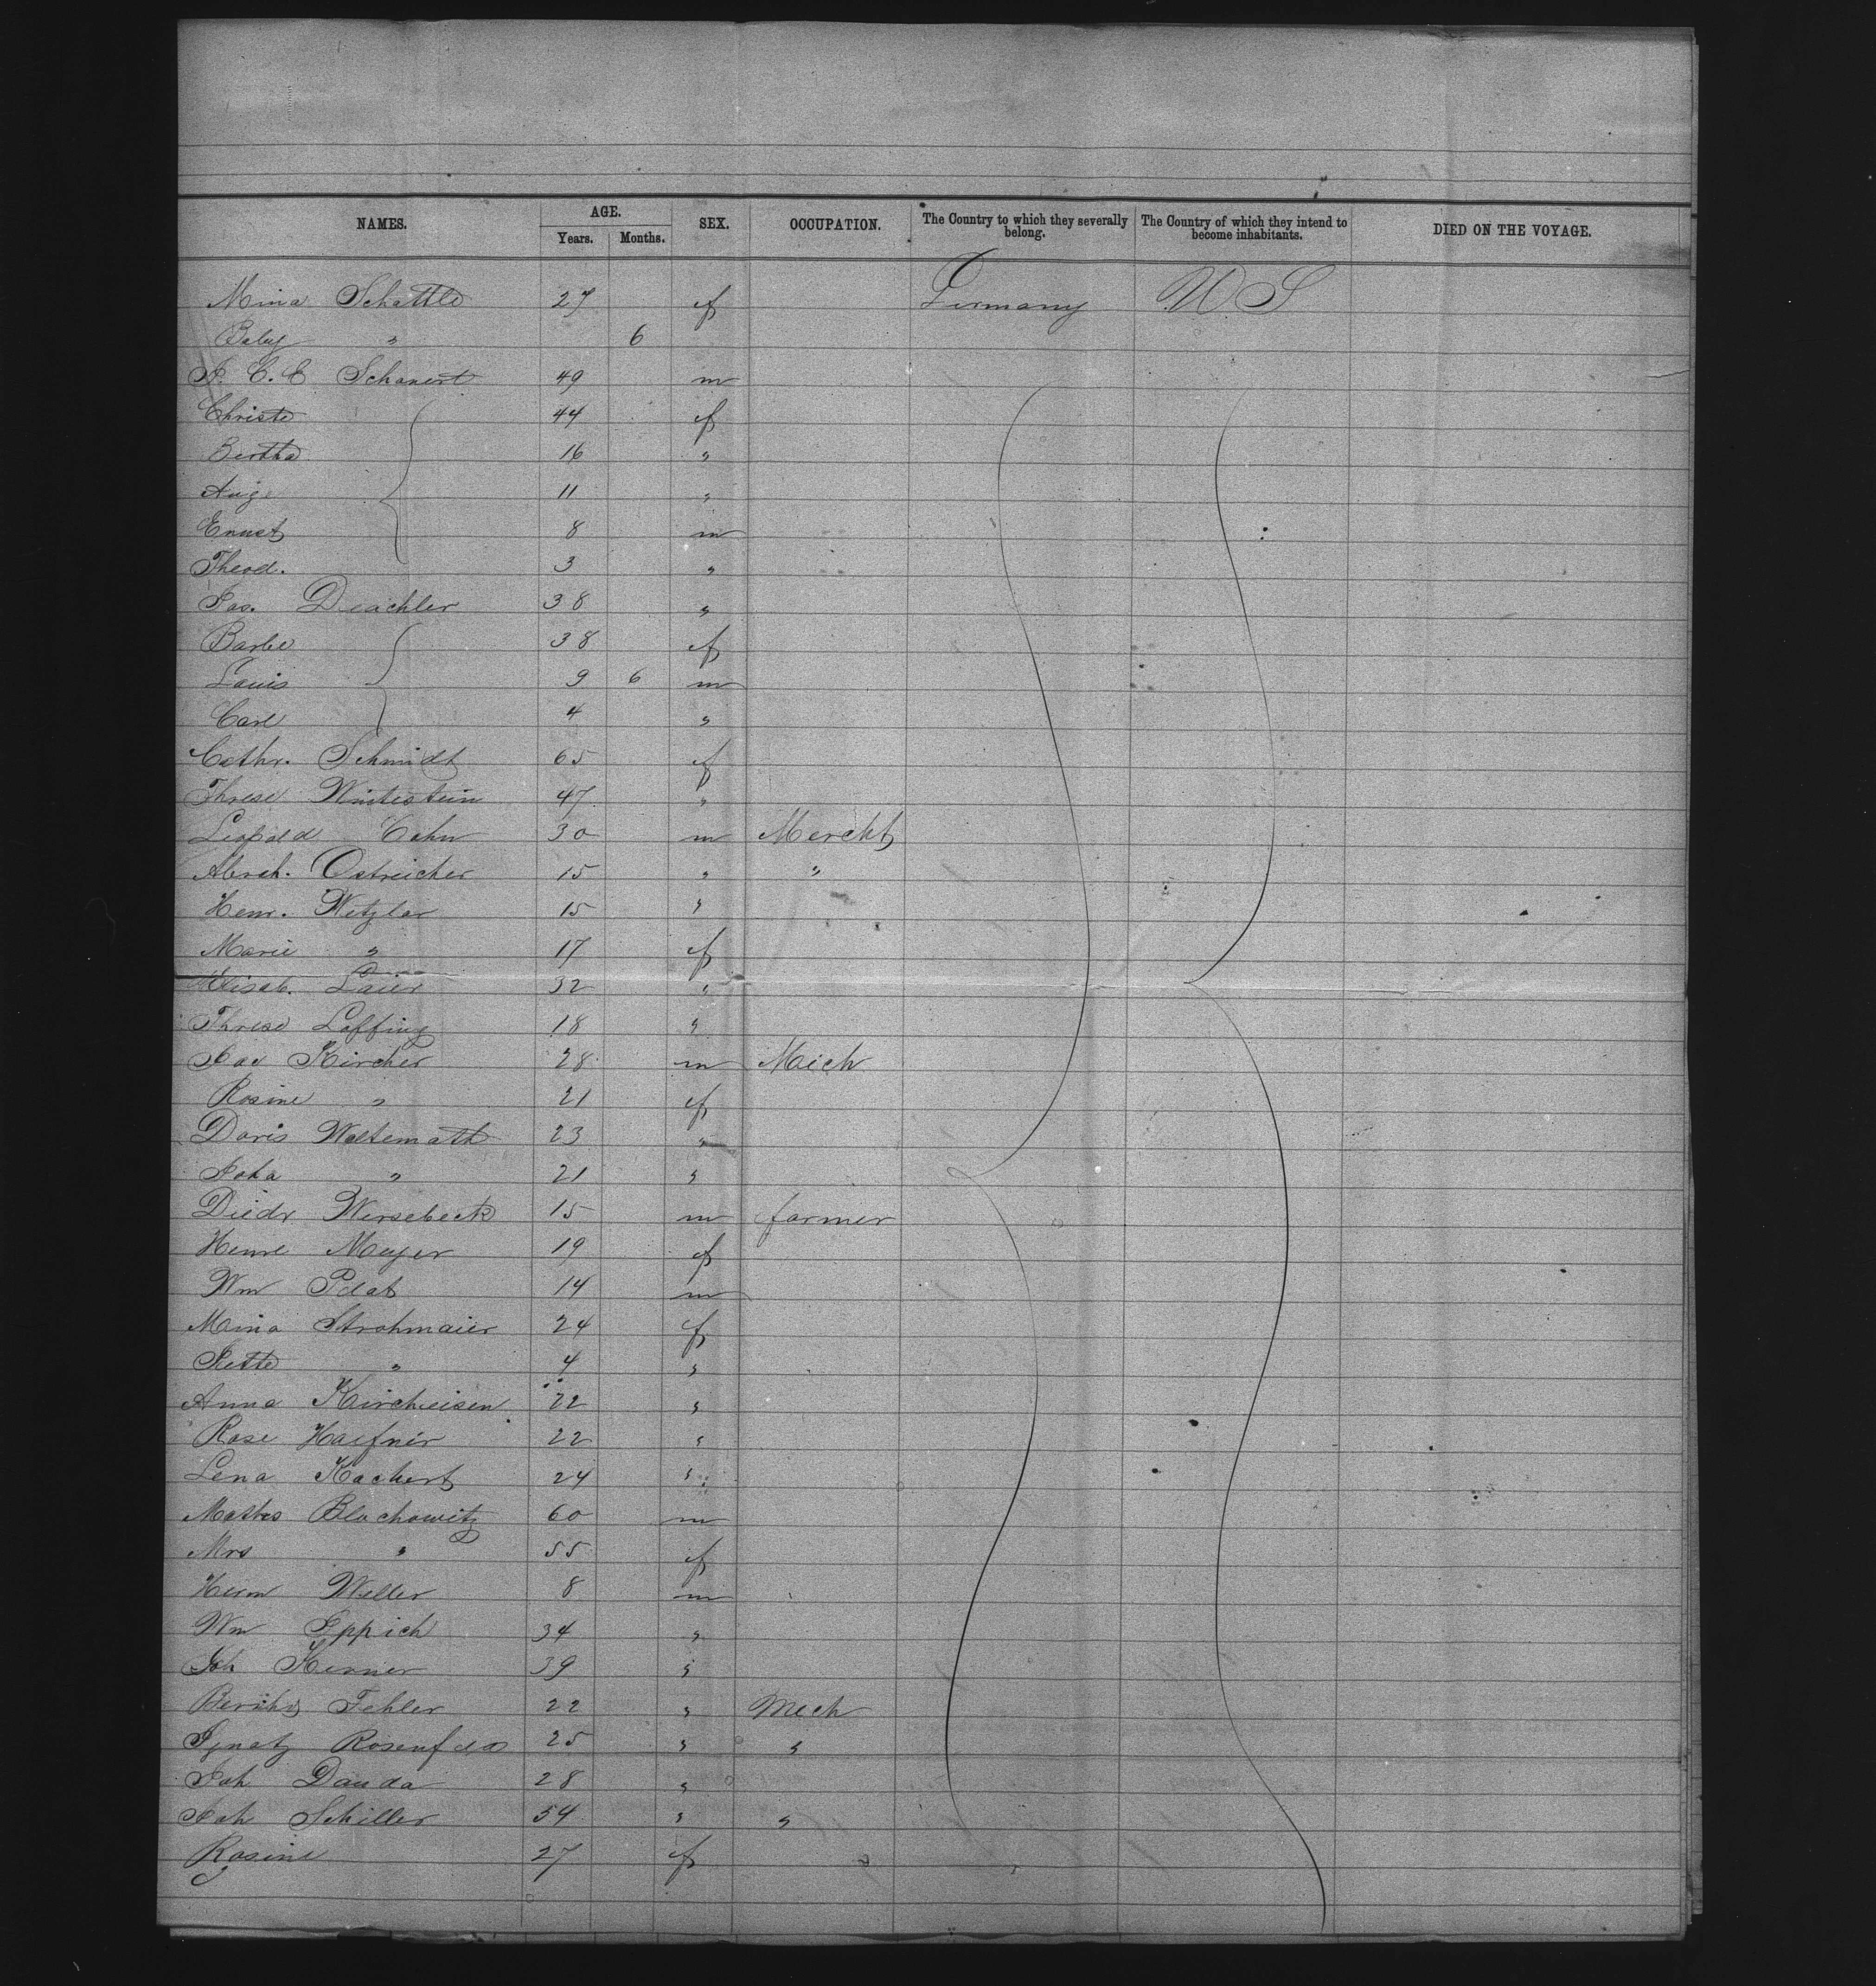 NAMES. AGE. SEX. OCCUPATION. The Country to which they severally belong. The Country of which they intend to become inhabitants. DIED ON THE VOYAGE.
Years. Months.
Mina Schattle 27 f Germany U S
Baby " 6
F. C. C Schanert 49 m
Christe 44 f
Bertha 16 "
Aug 11 "
Ernst 8 m
Theod. 3 "
Jos. Deachler 38 "
Barbe 38 f
Louis 9 6 m
Carl 4 "
Cathr. Schmidt 65 f
Threse Winterstein 47 "
Leopold Cahn 30 m Mercht
Abrah. Ostreicher 15 " "
Henr. Wetzlar 15 "
Marie " 17 f
Elisab. Laier 32 "
Threse Loffing 18 "
Kircher 28 m Mich
Rosine " 21 f
Doris Woltemath 23 "
Joha " 21 "
Diedr Wersebeck 15 m farmer
Henre Meyer 19 f
Wm Plat 14 m
Mina Strohmaier 24 f
Jette " 4 "
Anna Kircheisen 22 "
Rose Haefner 22 "
Lena Kachert 24 "
Blachowitz 60 m
Mrs " 55 f
Herm Weller 8 m
Wm Eppich 34 "
Joh Kerner 39 "
Fehler 22 " Mech
Ignatz 25 " "
Joh Danda 28 "
Joh Schiller 54 " "
Rosine 27 f